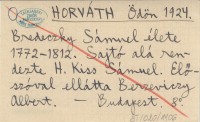 HORVÁTH Ödön 1924.
Bredeczky Sámuel élete
1772–1812. Sajtó alá ren-
dezte H. Kiss Sámuel. Elő-
szóval ellátta Berzeviczy
Albert. — Budapest. 8°.